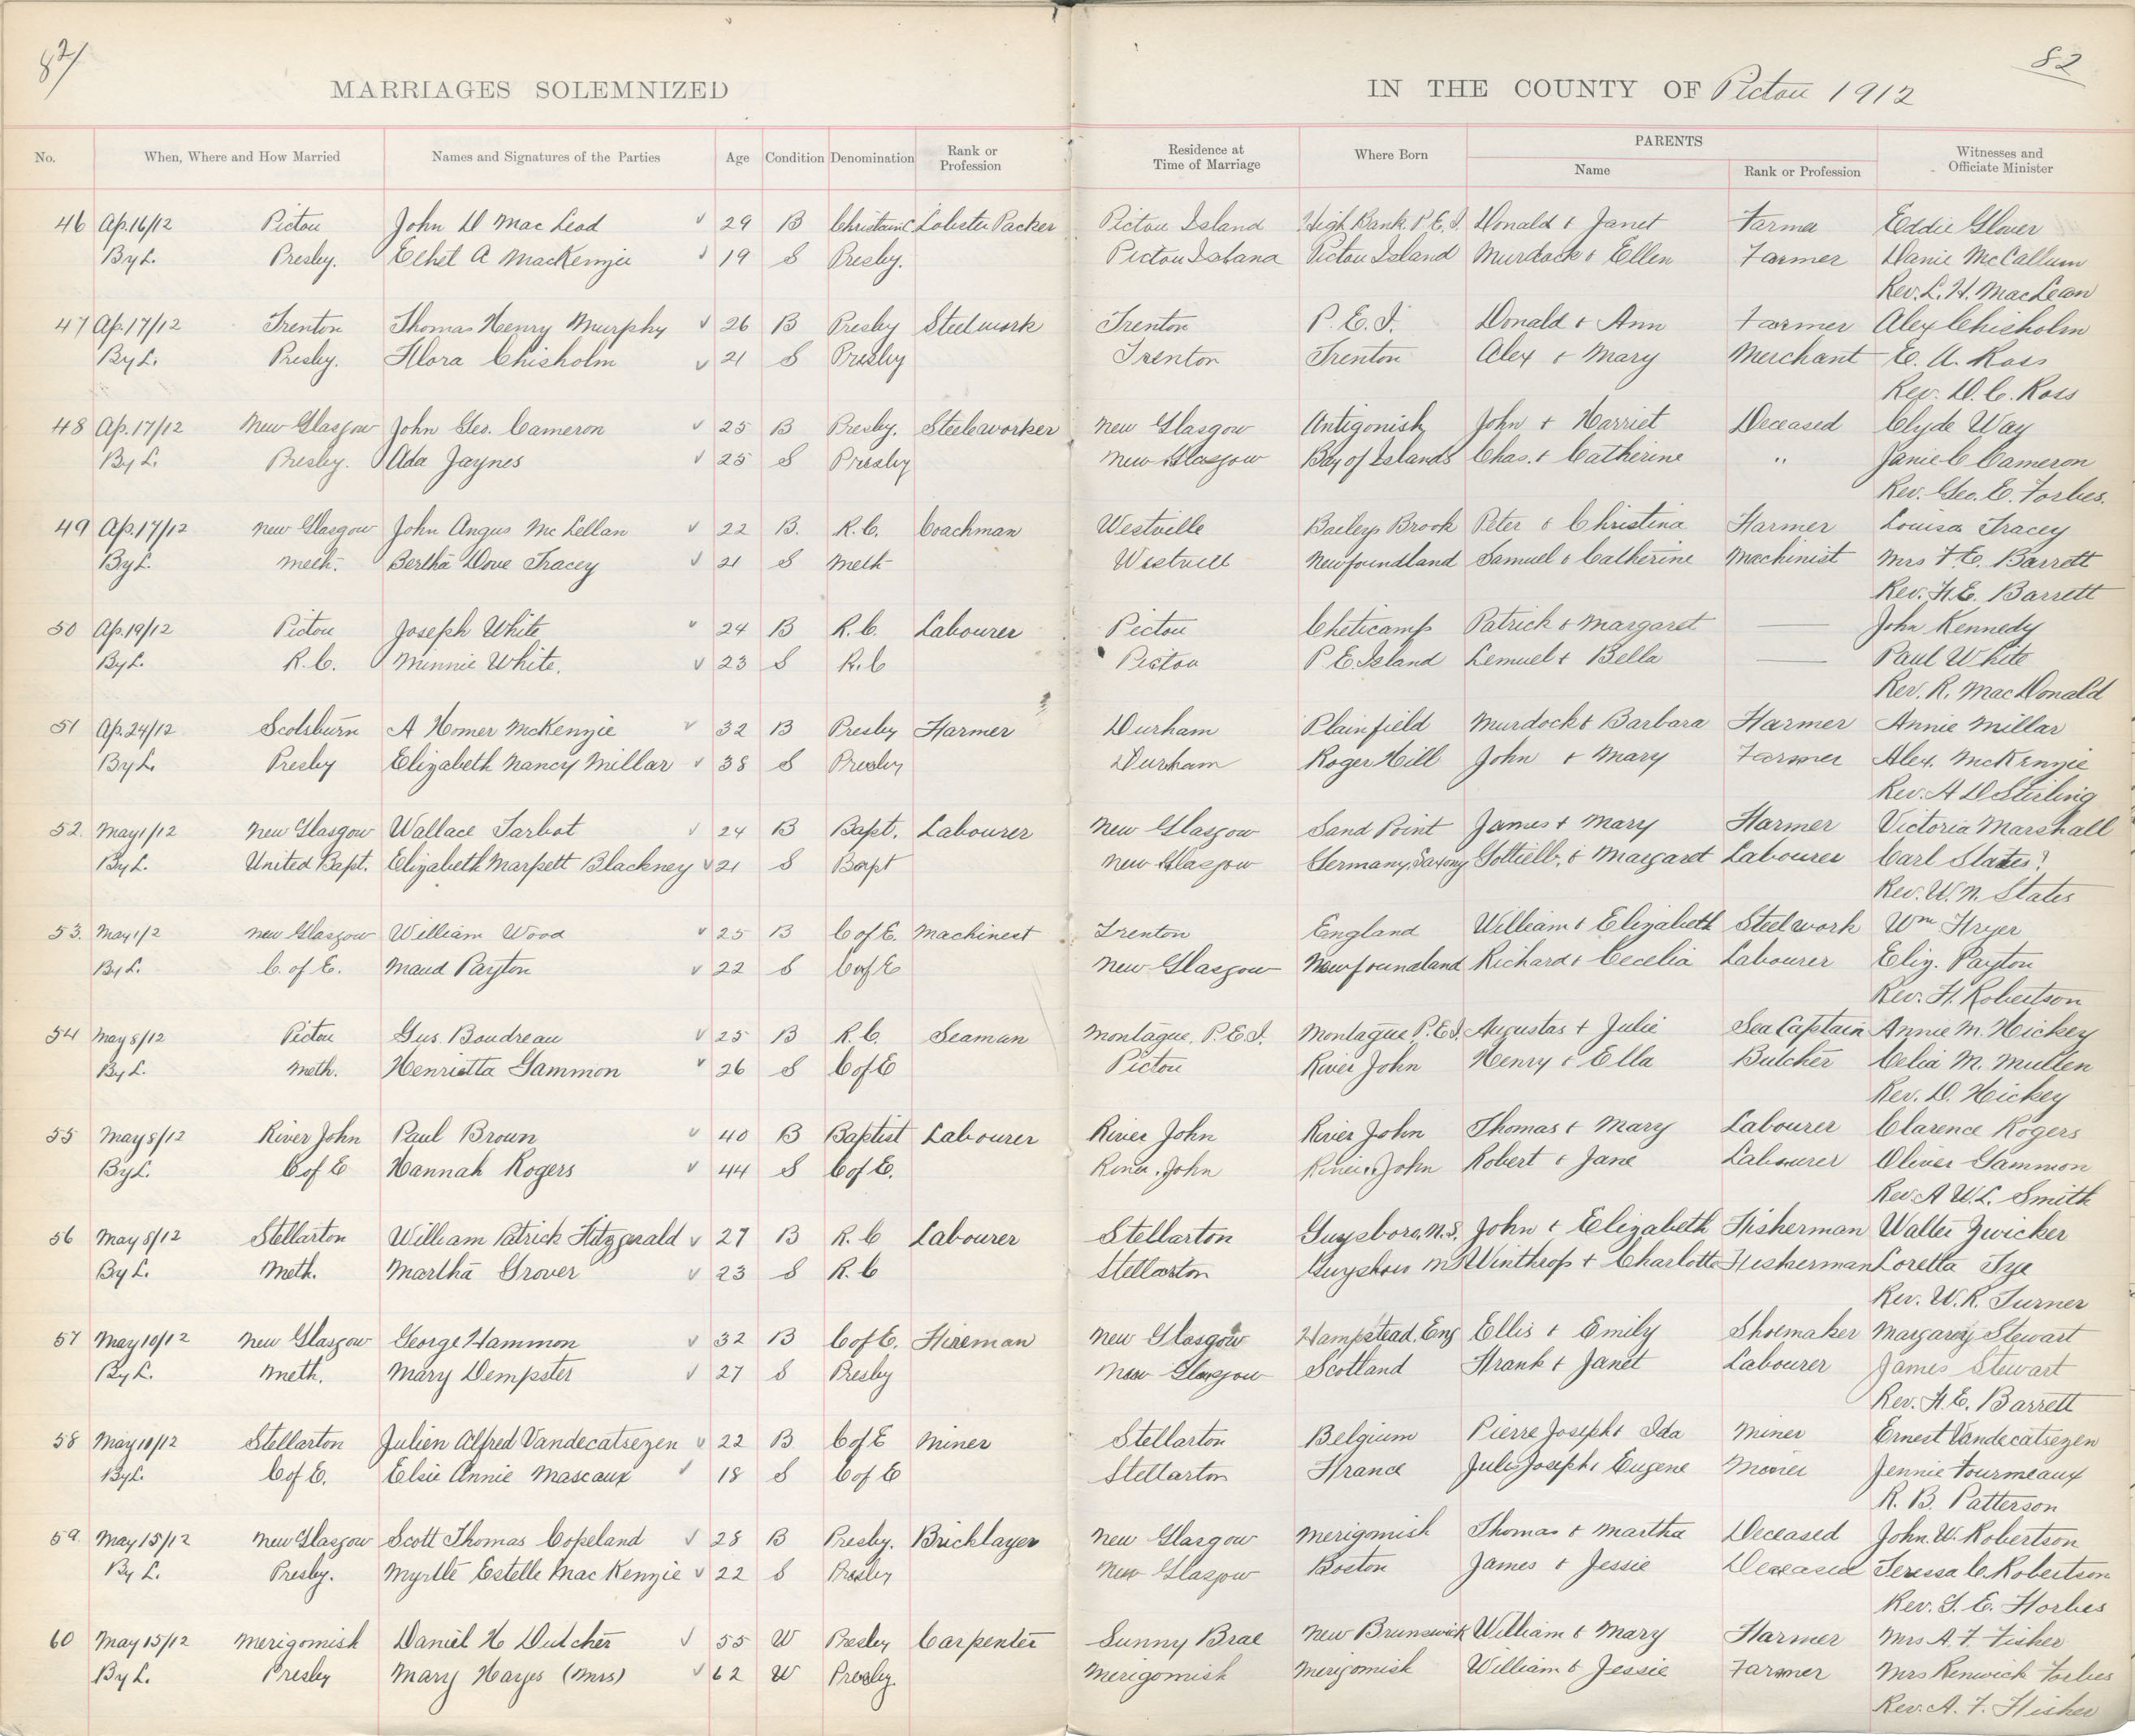 82 82
MARRIAGES SOLEMNIZED IN THE COUNTY OF Pictou 1912
No. When, Where and How Married Names and Signatures of the Parties Age Condition Denomination Rank or Profession Residence at Time of Marriage Where Born PARENTS Name Rank or Profession Witnesses and Officiate Minister
46 Ap.16/12 Pictou John D MacLeod 29 B Lobster Packer Pictou Island High Bank P.E.I. Donald & Janet Farmer Eddie Glover
By L. Presby. Ethel A MacKenzie 19 S Presby. Pictou Island Pictou Island Murdock & Ellen Farmer Danie McCallum
Rev. L. H. MacLean
47 Ap.17/12 Trenton Thomas Henry Murphy 26 B Presby Steelwork Trenton P.E.I. Donald & Ann Farmer Alex Chisholm
By L. Presby. Flora Chisholm 21 S Presby Trenton Trenton Alex & Mary Merchant E. A. Ross
Rev. D. C. Ross
48 Ap.17/12 New Glasgow John Geo. Cameron 25 B Presby. Steeleworker New Glasgow Antigonish John & Harriet Deceased Clyde Way
By L. Presby. Ada Jaynes 25 S Presby New Glasgow Bay of Islands Chas. & Catherine " Janie C Cameron
Rev. Geo. E. Forbes.
49 Ap.17/12 New Glasgow John Angus McLellan 22 B. R.C. Coachman Westville Baileys Brook Peter & Christina Farmer Louisa Tracey
By L. Meth. Bertha Dove Tracey 21 S Meth Westvill Newfoundland Samuel & Catherine Machinist Mrs F. E. Barrett
Rev. F. E. Barrett
50 Ap.19/12 Pictou Joseph White 24 B R.C. Labourer Pictou Cheticamp Patrick & Margaret — John Kennedy
By L. R.C. Minnie White. 23 S R.C Pictou P.E.Island Lemuel & Bella — Paul White
Rev. R. MacDonald
51 Ap.24/12 Scotsburn A Homer McKenzie 32 B Presby Farmer Durham Plainfield Murdock & Barbara Farmer Annie Millar
By L. Presby Elizabeth Nancy Millar 38 S Presby Durham Roger Hill John & Mary Farmer Alex. McKenzie
Rev. A D Stirling
52. May 1/12 New Glasgow Wallace Tarbot 24 B Bapt. Labourer New Glasgow Sand Point James & Mary Farmer Victoria Marshall
By L. United Bapt. Elizabeth Marpett Blackney 21 S Bapt New Glasgow Germany, Saxony Gottielb. & Margaret Labourer Carl States?
Rev. W. N. States
53. May 1/2 New Glasgow William Wood 25 B C of E. Machinest Trenton England William & Elizabeth Steelwork Wm Fryer
By L. C. of E. Maud Payton 22 S C of E New Glasgow Newfoundland Richard & Cecelia Labourer Eliz. Payton
Rev. H. Robertson
54 May 8/12 Pictou Gus. Boudreau 25 B R.C. Seaman Montague, P.E.I. Montague P.E.I. Augustas & Julie Sea Captain Annie M. Hickey
By L. Meth. Henrietta Gammon 26 S C of E Pictou River John Henry & Ella Butcher Celia M. Mullen
Rev. D. Hickey
55 May 8/12 River John Paul Brown 40 B Baptist Labourer River John River John Thomas & Mary Labourer Clarence Rogers
By L. C of E Hannah Rogers 44 S C of E. River John River John Robert & Jane Labourer Oliver Gammon
Rev. A W. L. Smith
56 May 8/12 Stellarton William Patrick Fitzgerald 27 B R.C Labourer Stellarton Guysboro, N.S. John & Elizabeth Fisherman Walter Zwicker
By L. Meth. Martha Grover 23 S R.C Stellarton Winthrop & Charlotte Fisherman Loretta Tye
Rev. W. R. Turner
57 May 10/12 New Glasgow George Hammon 32 B C of E. Fireman New Glasgow Hampstead, Eng Ellis & Emily Shoemaker Margaray Stewart
By L. Meth. Mary Dempster 27 S Presby New Glasgow Scotland Frank & Janet Labourer James Stewart
Rev. F. E. Barrett
58 May 10/12 Stellarton Julien Alfred Vandecatsezen 22 B C of E Miner Stellarton Belgium Pierre Joseph & Ida Miner Ernest Vandecatsezen
By L. C of E. Elsie Annie Mascaux 18 S C of E Stellarton France Jules Joseph & Eugene Miner Jennie Fourmeaux
R. B. Patterson
59 May 15/12 New Glasgow Scott Thomas Copeland 28 B Presby. Bricklayer New Glasgow Merigomish Thomas & Martha Deceased John. W. Robertson
By L. Presby. Myrtle Estelle MacKenzie 22 S Presby New Glasgow Boston James & Jessie Deceased Teressa C. Robertson
Rev. G. E. Forbes
60 May 15/12 Merigomish Daniel H Dutcher 55 W Presby Carpenter Sunny Brae New Brunswick William & Mary Farmer Mrs A. F. Fisher
By L. Presby Mary Hayes (Mrs) 62 W Presby. Merigomish Merigomish William & Jessie Farmer Mrs Renwick Forbes
Rev. A. F. Fisher